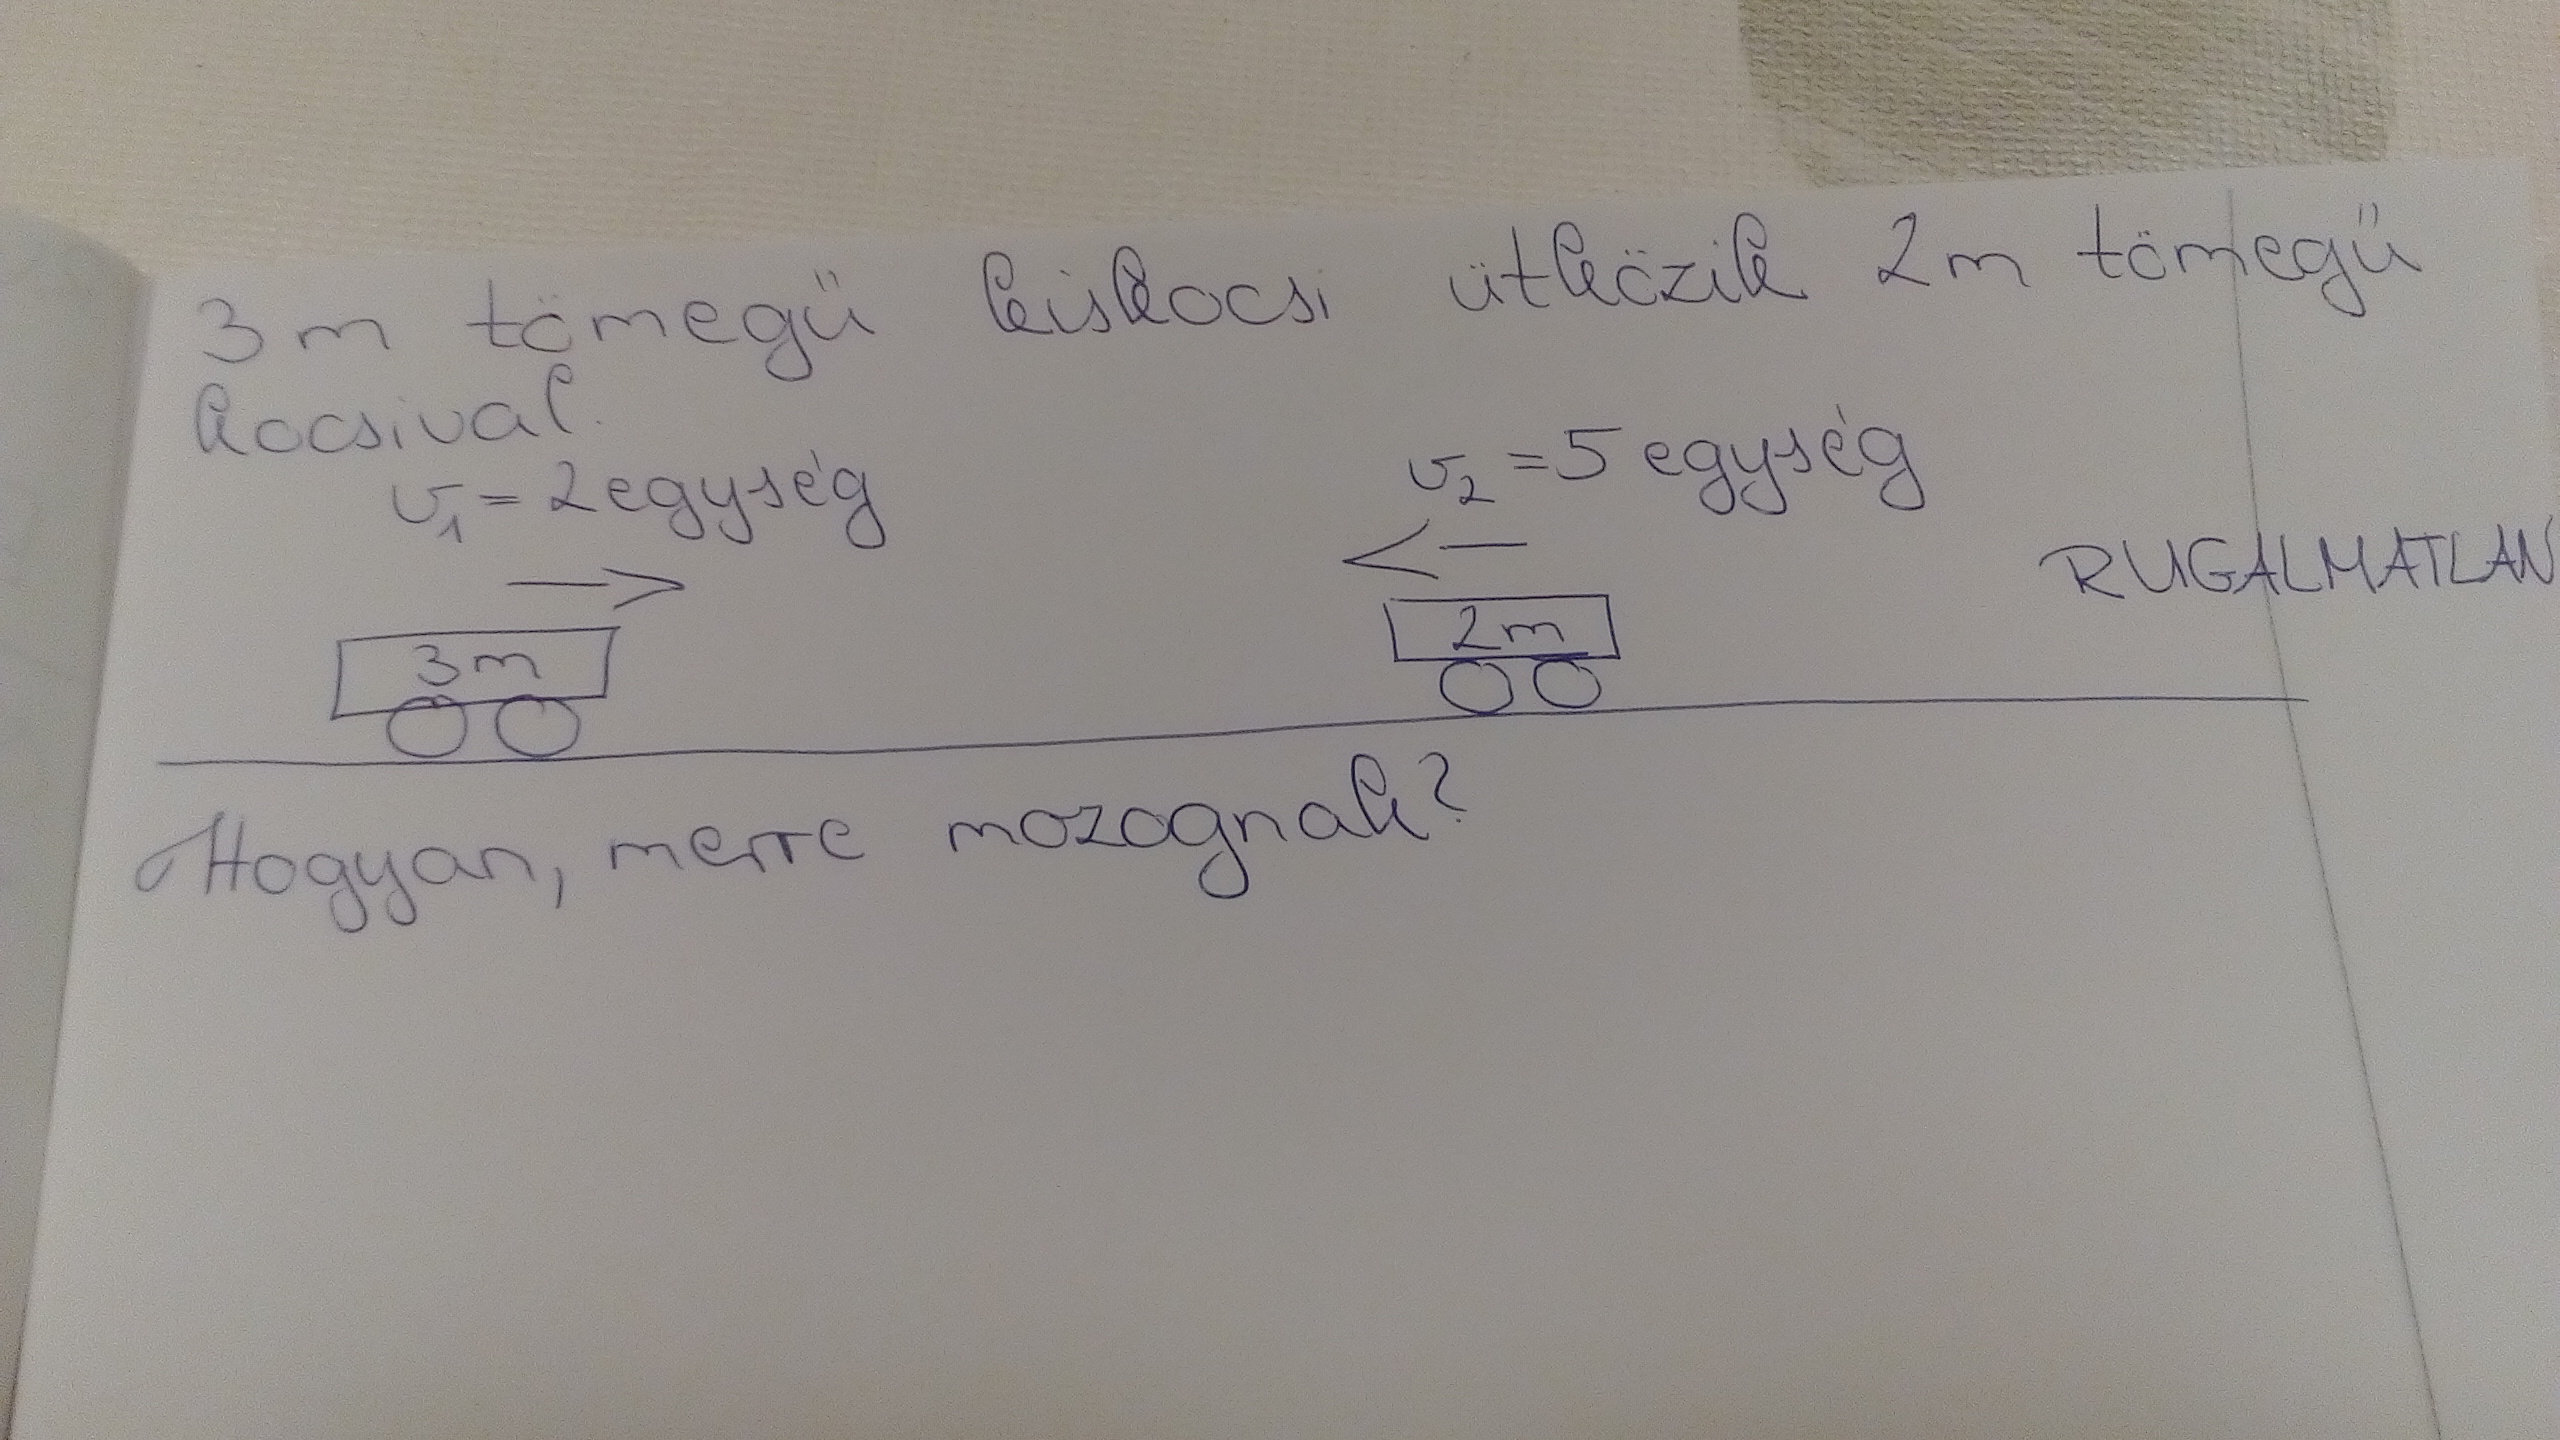 3m tömegű kiskocsi ütközik 2m tömegű
kocsival.
v₁=2egység
v₂=5egység
RUGALMATLAN
3m
2m
Hogyan, merre mozognak?